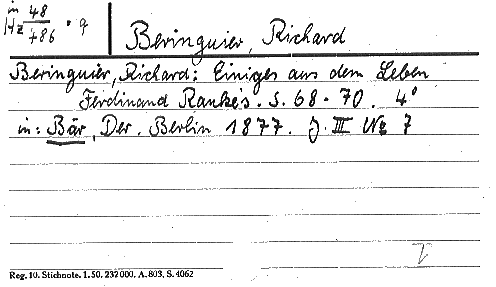 in 48
Hz 486 · q
Beringuier, Richard
Beringuier, Richard: Einiges aus dem Leben
Ferdinand Ranke's. S. 68-70. 4°
in: Bär, Der. Berlin 1877. J. III No 7
Reg. 10. Stichnote. 1. 50. 232 000. A. 803, S. 4062